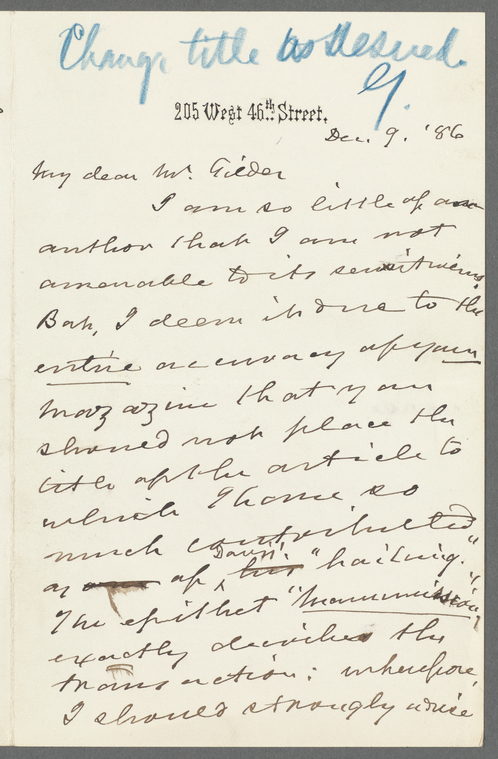 Change title as desired.
G.
205 West 46th Street.
Dec. 9. '86
My dear Mr. Gilder
I am so little of an
author that I am not
amenable to its sensitiveness.
But, I deem it due to the
entire accuracy of your
magazine that you
should not place the
title of the article to
which I have so
much contributed
as of Davis': "hailing."
The epithet "Manumission"
exactly describes the
transaction: wherefore,
I should strongly advise